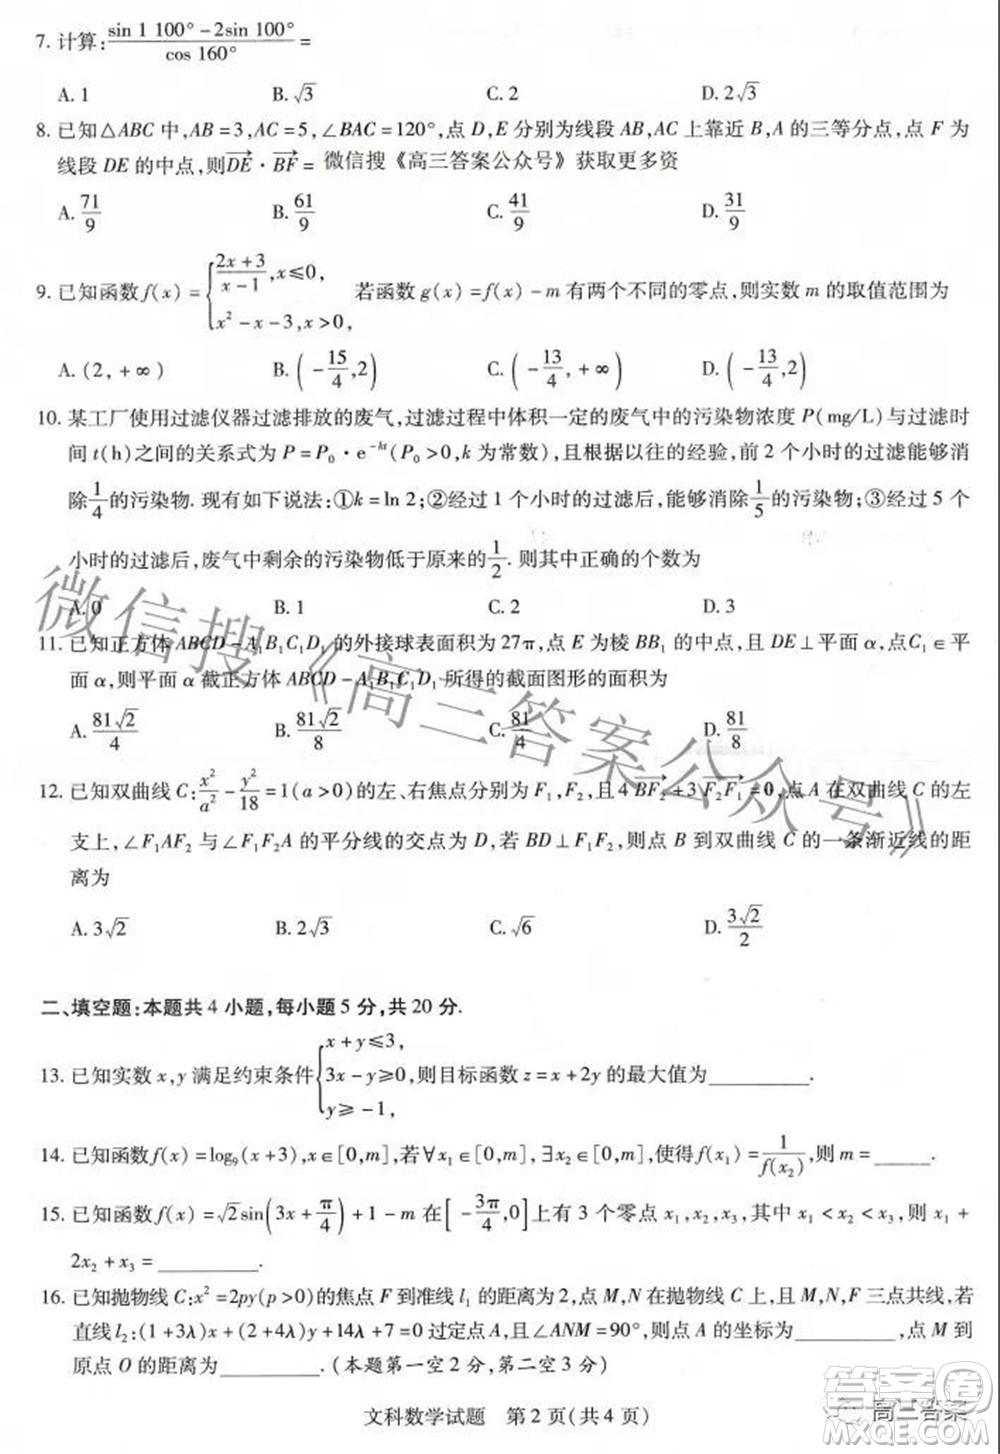 7. 计算:(sin 1 100° − 2sin 100°)/cos 160° =
A. 1 B. √3 C. 2 D. 2√3
8. 已知△ABC 中,AB=3,AC=5,∠BAC=120°,点 D,E 分别为线段 AB,AC 上靠近 B,A 的三等分点,点 F 为
线段 DE 的中点,则DE→ · BF→ = 微信搜《高三答案公众号》获取更多资
A. 71/9 B. 61/9 C. 41/9 D. 31/9
9. 已知函数 f(x) = { (2x+3)/(x−1), x≤0, x²−x−3, x>0, 若函数 g(x)=f(x)−m 有两个不同的零点,则实数 m 的取值范围为
A. (2, +∞) B. (−15/4, 2) C. (−13/4, +∞) D. (−13/4, 2)
10. 某工厂使用过滤仪器过滤排放的废气,过滤过程中体积一定的废气中的污染物浓度 P(mg/L)与过滤时
间 t(h)之间的关系式为 P=P₀·e^(−kt)(P₀>0,k 为常数),且根据以往的经验,前 2 个小时的过滤能够消
除1/4的污染物. 现有如下说法:①k=ln 2;②经过 1 个小时的过滤后,能够消除1/5的污染物;③经过 5 个
小时的过滤后,废气中剩余的污染物低于原来的1/2. 则其中正确的个数为
A. 0 B. 1 C. 2 D. 3
11. 已知正方体 ABCD−A₁B₁C₁D₁ 的外接球表面积为 27π,点 E 为棱 BB₁ 的中点,且 DE⊥平面 α,点C₁∈平
面 α,则平面 α 截正方体 ABCD−A₁B₁C₁D₁ 所得的截面图形的面积为
A. 81√2/4 B. 81√2/8 C. 81/4 D. 81/8
12. 已知双曲线 C:x²/a² − y²/18 =1(a>0)的左、右焦点分别为 F₁,F₂,且 4BF₂→+3F₂F₁→=0,点 A 在双曲线 C 的左
支上,∠F₁AF₂ 与∠F₁F₂A 的平分线的交点为 D,若 BD⊥F₁F₂,则点 B 到双曲线 C 的一条渐近线的距
离为
A. 3√2 B. 2√3 C. √6 D. 3√2/2
二、填空题:本题共 4 小题,每小题 5 分,共 20 分.
13. 已知实数 x,y 满足约束条件{ x+y≤3, 3x−y≥0, y≥−1, 则目标函数 z=x+2y 的最大值为________.
14. 已知函数 f(x)=log₉(x+3),x∈[0,m],若∀x₁∈[0,m],∃x₂∈[0,m],使得 f(x₁)=1/f(x₂),则 m=_____.
15. 已知函数 f(x)=√2sin(3x+π/4)+1−m 在[−3π/4,0]上有 3 个零点 x₁,x₂,x₃,其中 x₁<x₂<x₃,则 x₁+
2x₂+x₃=________.
16. 已知抛物线 C:x²=2py(p>0)的焦点 F 到准线 l₁ 的距离为 2,点 M,N 在抛物线 C 上,且 M,N,F 三点共线,若
直线 l₂:(1+3λ)x+(2+4λ)y+14λ+7=0 过定点 A,且∠ANM=90°,则点 A 的坐标为________,点 M 到
原点 O 的距离为________. (本题第一空 2 分,第二空 3 分)
文科数学试题 第 2 页(共 4 页)
微信搜《高三答案公众号》
高三答案
答案圈